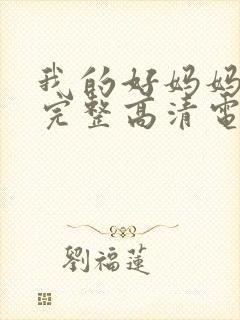 我的好妈妈
完整高清电
劉福蓮